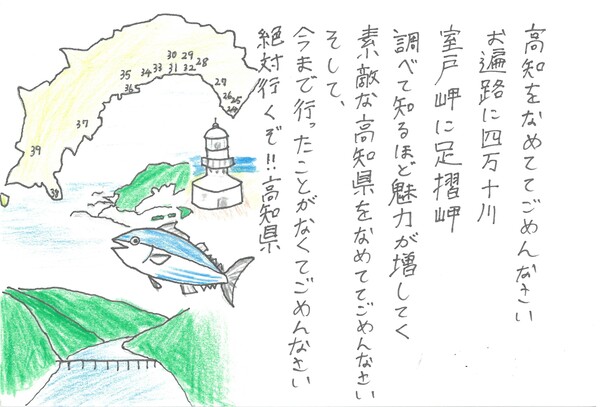 高知をなめててごめんなさい
お遍路に四万十川
室戸岬に足摺岬
調べて知るほど魅力が増してく
素敵な高知県をなめててごめんなさい
そして、
今まで行ったことがなくてごめんなさい
絶対行くぞ!!高知県
30 29
35 34 33 31 32 28
36
27
26 25
24
37
39
38